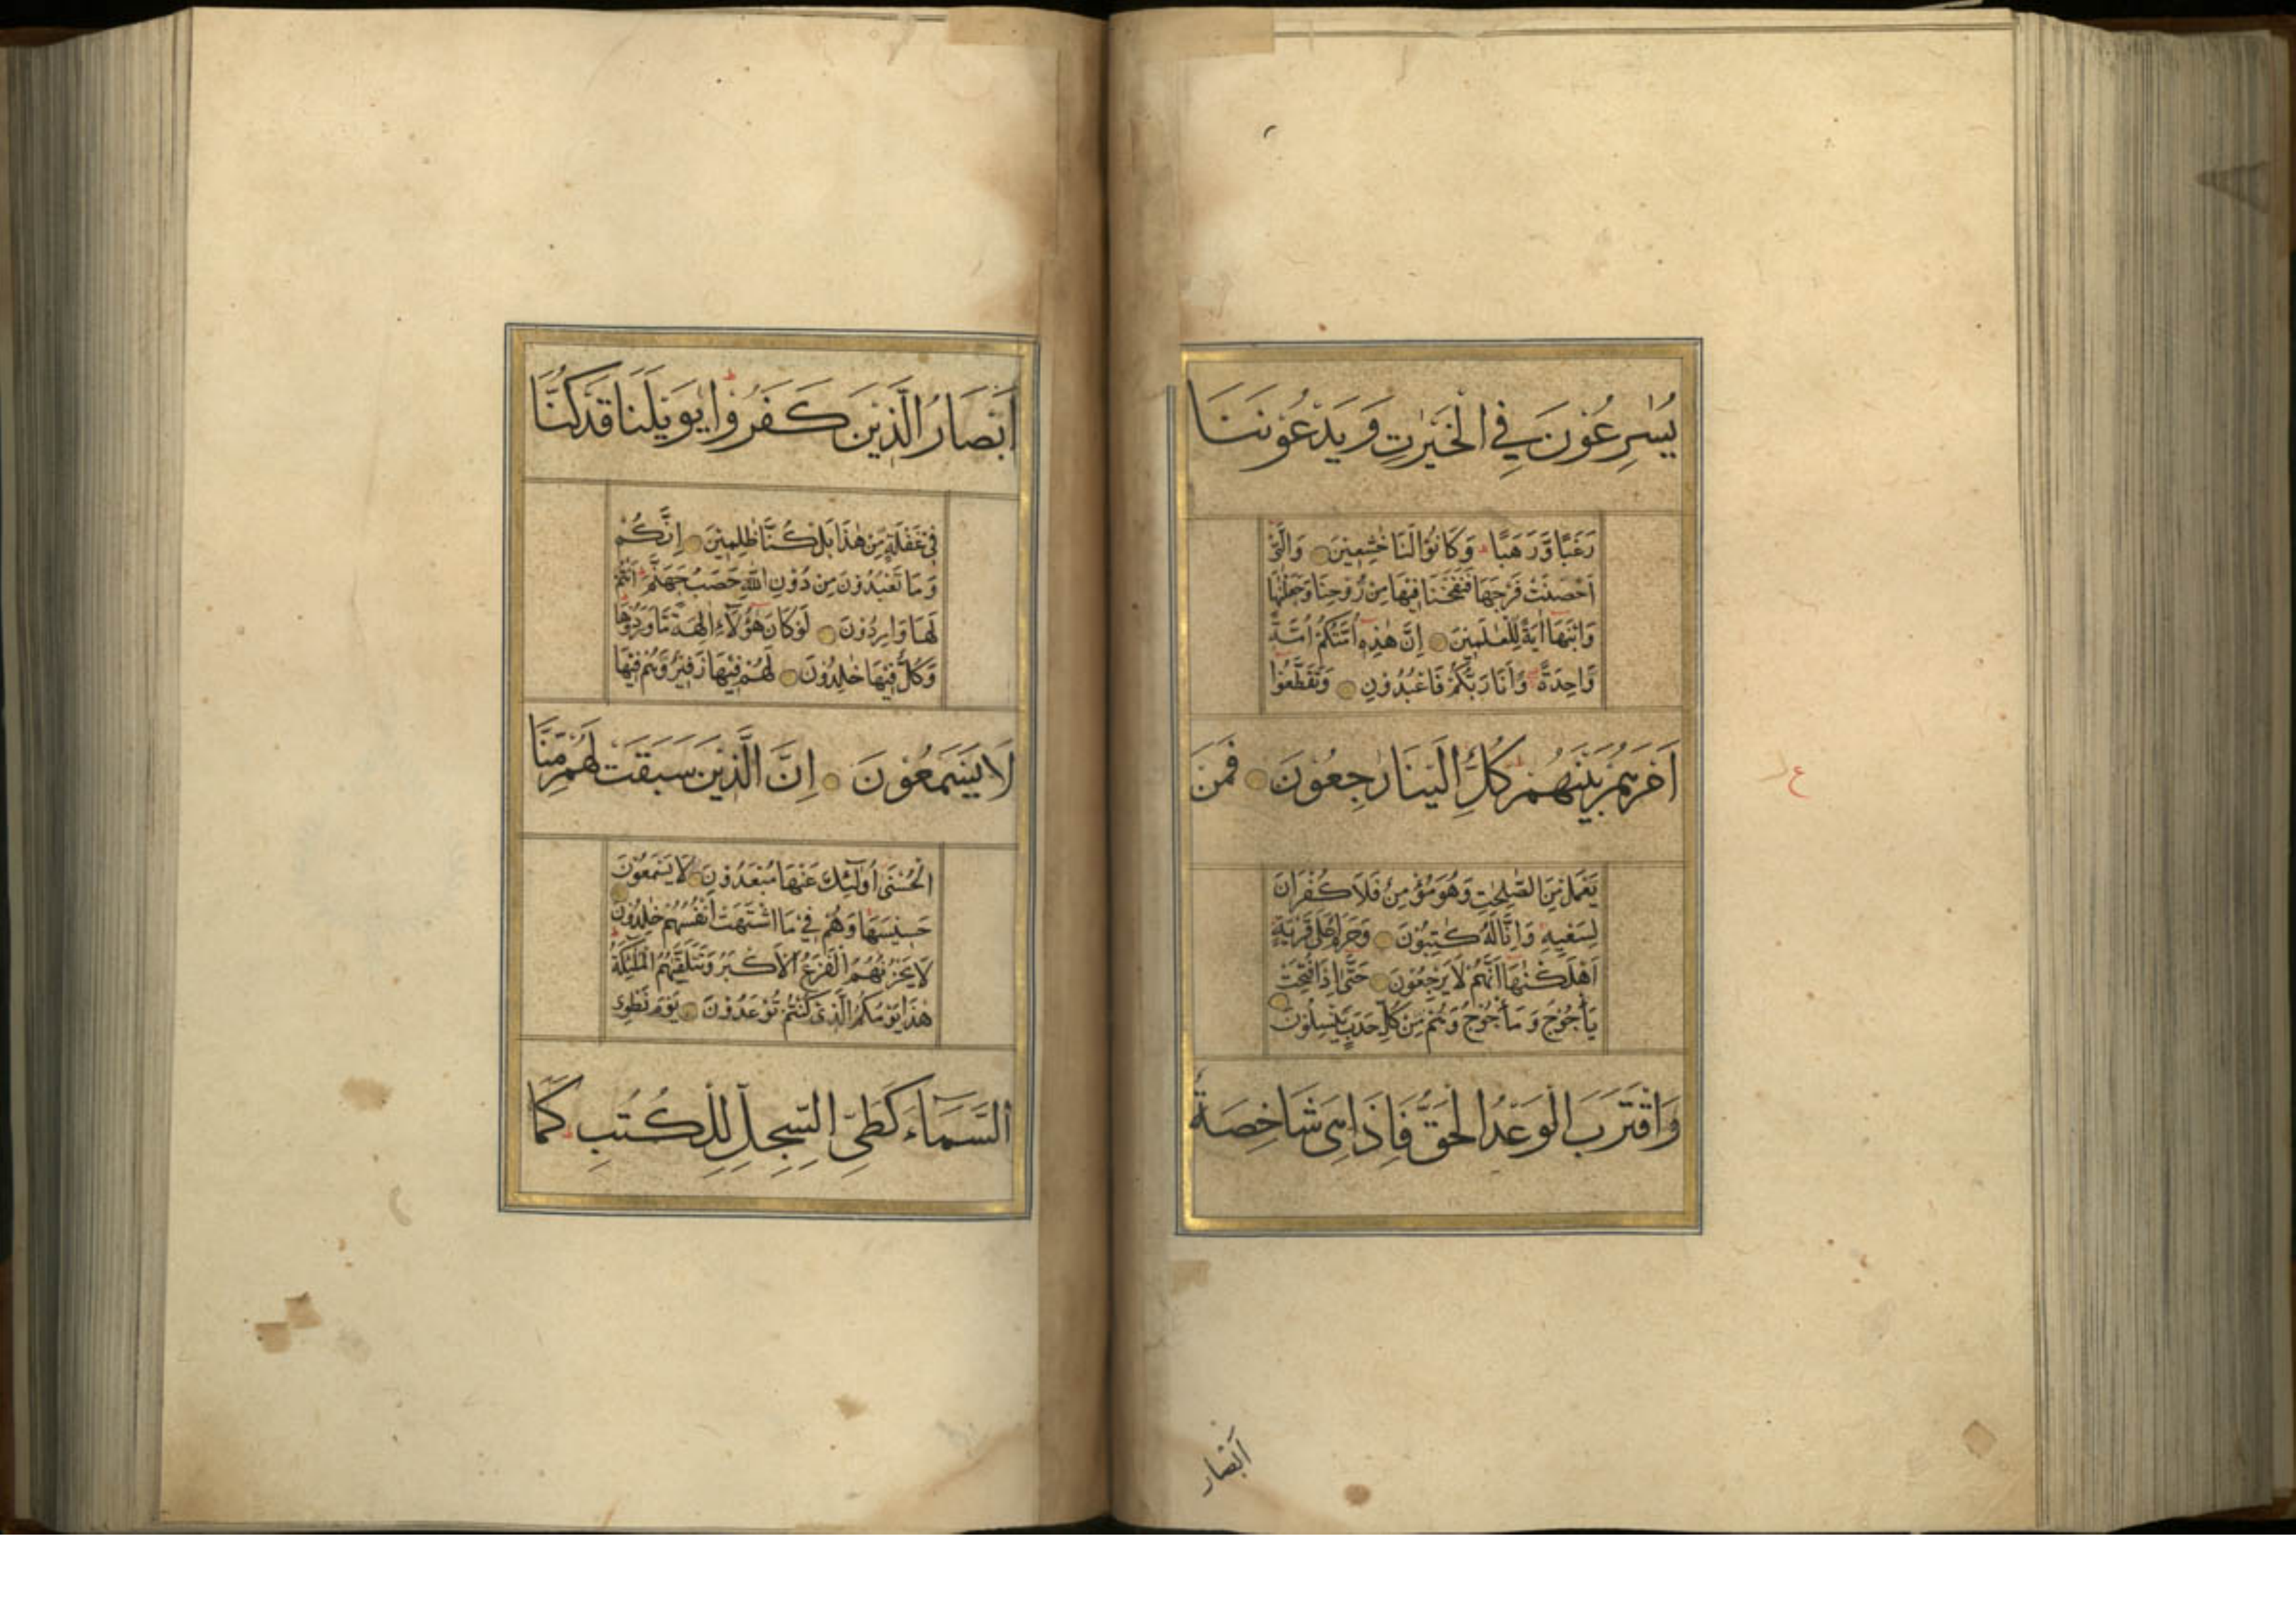 يُسٰرِعُوْنَ فِي الْخَيْرٰتِ وَيَدْعُوْنَنَا
رَغَبًا وَّرَهَبًا ط وَكَانُوْا لَنَا خٰشِعِيْنَ وَالَّتِيْٓ
اَحْصَنَتْ فَرْجَهَا فَنَفَخْنَا فِيْهَا مِنْ رُّوْحِنَا وَجَعَلْنٰهَا
وَابْنَهَا اٰيَةً لِّلْعٰلَمِيْنَ اِنَّ هٰذِهٖٓ اُمَّتُكُمْ اُمَّةً
وَّاحِدَةً وَّاَنَا رَبُّكُمْ فَاعْبُدُوْنِ وَتَقَطَّعُوْٓا
اَمْرَهُمْ بَيْنَهُمْ ط كُلٌّ اِلَيْنَا رٰجِعُوْنَ فَمَنْ
يَّعْمَلْ مِنَ الصّٰلِحٰتِ وَهُوَ مُؤْمِنٌ فَلَا كُفْرَانَ
لِسَعْيِهٖ وَاِنَّا لَهٗ كٰتِبُوْنَ وَحَرَامٌ عَلٰى قَرْيَةٍ
اَهْلَكْنٰهَآ اَنَّهُمْ لَا يَرْجِعُوْنَ حَتّٰٓى اِذَا فُتِحَتْ
يَاْجُوْجُ وَمَاْجُوْجُ وَهُمْ مِّنْ كُلِّ حَدَبٍ يَّنْسِلُوْنَ
وَاقْتَرَبَ الْوَعْدُ الْحَقُّ فَاِذَا هِيَ شَاخِصَةٌ
ع
اَبْصَار
اَبْصَارُ الَّذِيْنَ كَفَرُوْا ط يٰوَيْلَنَا قَدْ كُنَّا
فِيْ غَفْلَةٍ مِّنْ هٰذَا بَلْ كُنَّا ظٰلِمِيْنَ اِنَّكُمْ
وَمَا تَعْبُدُوْنَ مِنْ دُوْنِ اللّٰهِ حَصَبُ جَهَنَّمَ ط اَنْتُمْ
لَهَا وَارِدُوْنَ لَوْ كَانَ هٰٓؤُلَآءِ اٰلِهَةً مَّا وَرَدُوْهَا ط
وَكُلٌّ فِيْهَا خٰلِدُوْنَ لَهُمْ فِيْهَا زَفِيْرٌ وَّهُمْ فِيْهَا
لَا يَسْمَعُوْنَ اِنَّ الَّذِيْنَ سَبَقَتْ لَهُمْ مِّنَّا
الْحُسْنٰٓى اُولٰٓئِكَ عَنْهَا مُبْعَدُوْنَ لَا يَسْمَعُوْنَ
حَسِيْسَهَا وَهُمْ فِيْ مَا اشْتَهَتْ اَنْفُسُهُمْ خٰلِدُوْنَ
لَا يَحْزُنُهُمُ الْفَزَعُ الْاَكْبَرُ وَتَتَلَقّٰهُمُ الْمَلٰٓئِكَةُ ط
هٰذَا يَوْمُكُمُ الَّذِيْ كُنْتُمْ تُوْعَدُوْنَ يَوْمَ نَطْوِي
السَّمَآءَ كَطَيِّ السِّجِلِّ لِلْكُتُبِ ط كَمَا